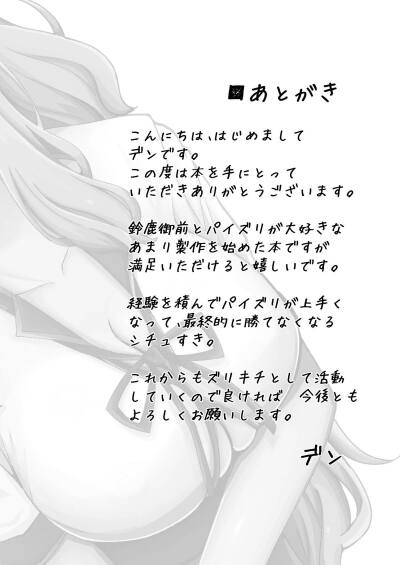 あとがき
こんにちは、はじめまして
デンです。
この度は本を手にとって
いただきありがとうございます。
鈴鹿御前とパイズリが大好きな
あまり製作を始めた本ですが
満足いただけると嬉しいです。
経験を積んでパイズリが上手く
なって、最終的に勝てなくなる
シチュすき。
これからもズリキチとして活動
していくので良ければ 今後とも
よろしくお願いします。
デン